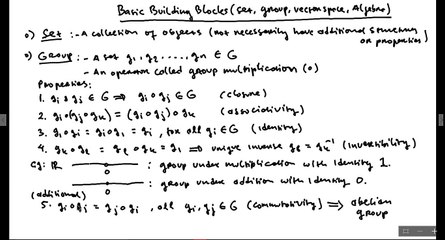 Basic Building Blocks (set, group, vector space, Algebra)
0) Set :- A collection of objects (not necessarily have additional structure or properties)
0) Group :- A set g₁, g₂, ....., gₙ ∈ G
- An operation called group multiplication (∘)
Properties:
1. gᵢ, gⱼ ∈ G ⟹ gᵢ∘gⱼ ∈ G (closure)
2. gᵢ∘(gⱼ∘gₖ) = (gᵢ∘gⱼ)∘gₖ (associativity)
3. g₁∘gᵢ = gᵢ∘g₁ = gᵢ, for all gᵢ ∈ G (Identity)
4. gₖ∘gₗ = gₗ∘gₖ = g₁ ⟹ unique inverse gₗ = gₖ⁻¹ (Invertibility)
eg: ℝ 0 : group under multiplication with Identity 1.
0 : group under addition with Identity 0.
(additional)
5. gᵢ∘gⱼ = gⱼ∘gᵢ, all gᵢ, gⱼ ∈ G (commutativity) ⟹ abelian group